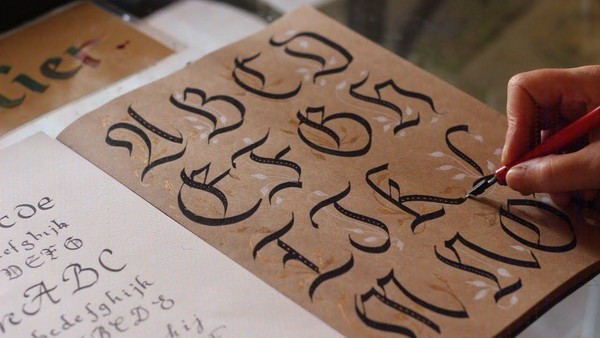 lier
A B C D
E F G H
I J K L
M N O
cde
defghijk
DEFG
ABC
bcdefghijk
ABCDE
hij